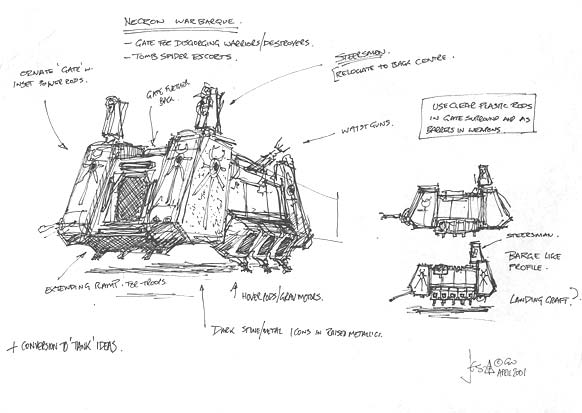 NECRON WARBARQUE.
- GATE FOR DISGORGING WARRIORS/DESTROYERS.
- TOMB SPIDER ESCORTS.
STEERSMAN.
RELOCATE TO BACK CENTRE.
ORNATE 'GATE' W.
INSET POWER RODS.
GATE FURTHER
BACK.
WAIST GUNS.
USE CLEAR PLASTIC RODS
IN GATE SURROUND AND AS
BARRELS IN WEAPONS.
STEERSMAN.
BARGE LIKE
PROFILE.
LANDING CRAFT?
EXTENDING RAMP. FOR TROOPS.
HOVER PODS/GRAV MOTORS.
DARK STONE/METAL ICONS IN RAISED METALLICS.
+ CONVERSION TO 'TANK' IDEAS.
© GW
APRIL 2001